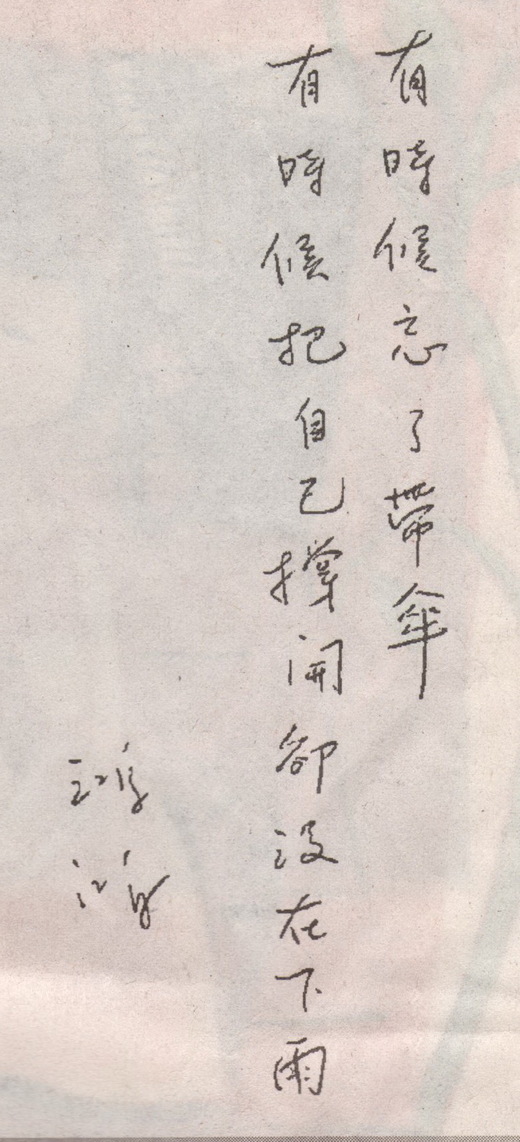 有時候忘了帶傘
有時候把自己撐開卻沒在下雨
鴻鴻